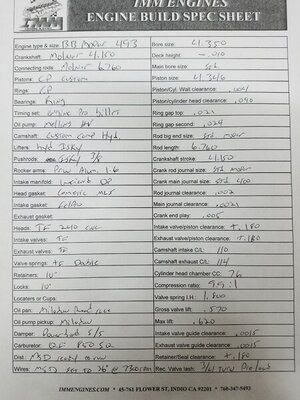 IMM ENGINES
ENGINE BUILD SPEC SHEET
Engine type & size: BB Mopar 493 Bore size: 4.350
Crankshaft: Molnar 4.150 Deck height: -.010
Connecting rods: Molnar 6.760 Main bore size: Std
Pistons: CP Custom Piston size: 4.346
Rings: CP Piston/Cyl. Wall clearance: .004
Bearings: King Piston/cylinder head clearance: .040
Timing set: Pro billet Ring gap top: .021
Oil pump: Melling HV Ring gap second: .024
Camshaft: Custom Comp Hyd. Rod big end size: Std mopar
Lifters: Hyd Rod length: 6.760
Pushrods: 3/8 Crankshaft stroke: 4.150
Rocker arms: Alum. 1.6 Crank rod journal size: Std mopar
Intake manifold: DP Crank main journal size: Std 400
Head gasket: Cometic MLS Rod journal clearance: .002
Intake gasket: FelPro Main journal clearance: .0021
Exhaust gasket: Crank end play: .005
Heads: TF 240 CNC Intake valve/piston clearance: +.180
Intake valves: TF Exhaust valve/piston clearance: +.180
Exhaust valves: TF Camshaft intake C/L: 110
Valve springs: TF Double Camshaft exhaust C/L: 114
Retainers: 10° Cylinder head chamber CC: 76
Locks: 10° Compression ratio: 9.9:1
Locators or Cups: Valve spring I.H.: 1.800
Oil pan: Milodon Gross valve lift: .570
Oil pump pickup: Milodon Max lift: .620
Damper: Intake valve guide clearance: .0015
Carburetor: QF 850 Exhaust valve guide clearance: .0015
Dist: MSD ready to run Retainer/Seal clearance: +.180
Wires: MSD Set to 36° @ Rec. Valve lash:
IMMENGINES.COM * 45-761 FLOWER ST, INDIO CA 92201 * 760-347-5493